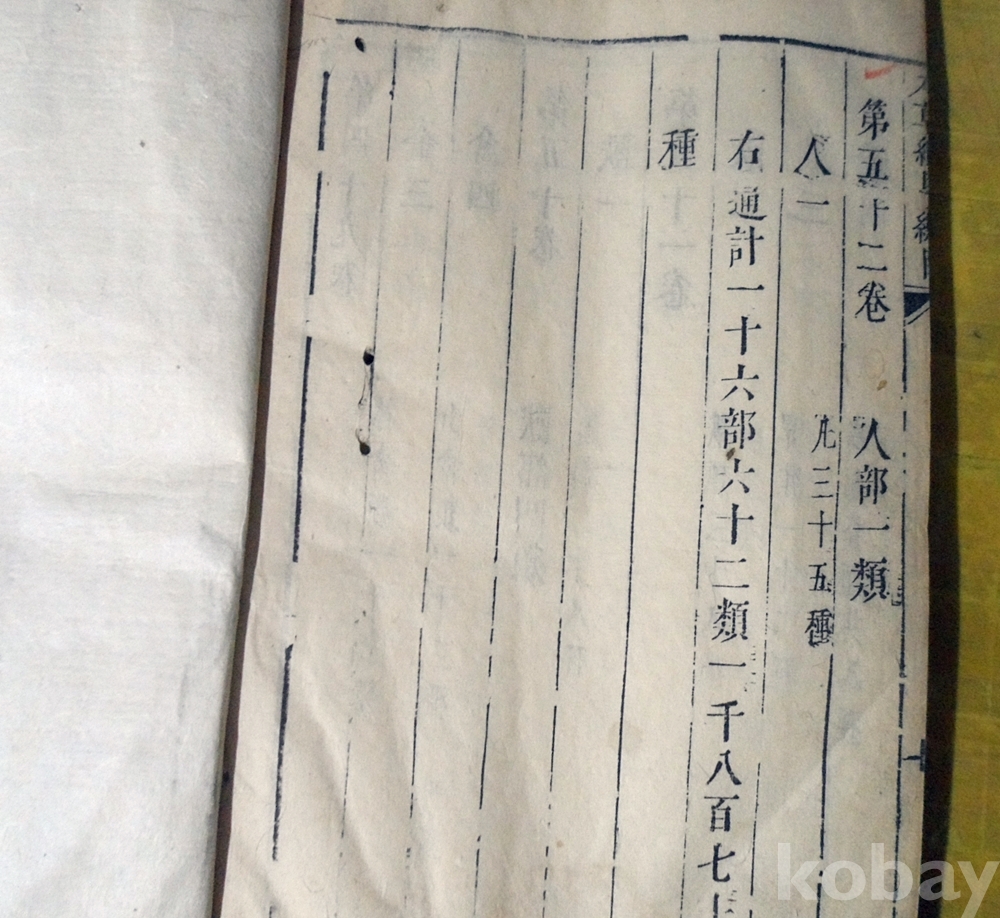 第五十二卷　人部一類
人一　凡三十五種
右通計一十六部六十二類一千八百七十
種
kobay